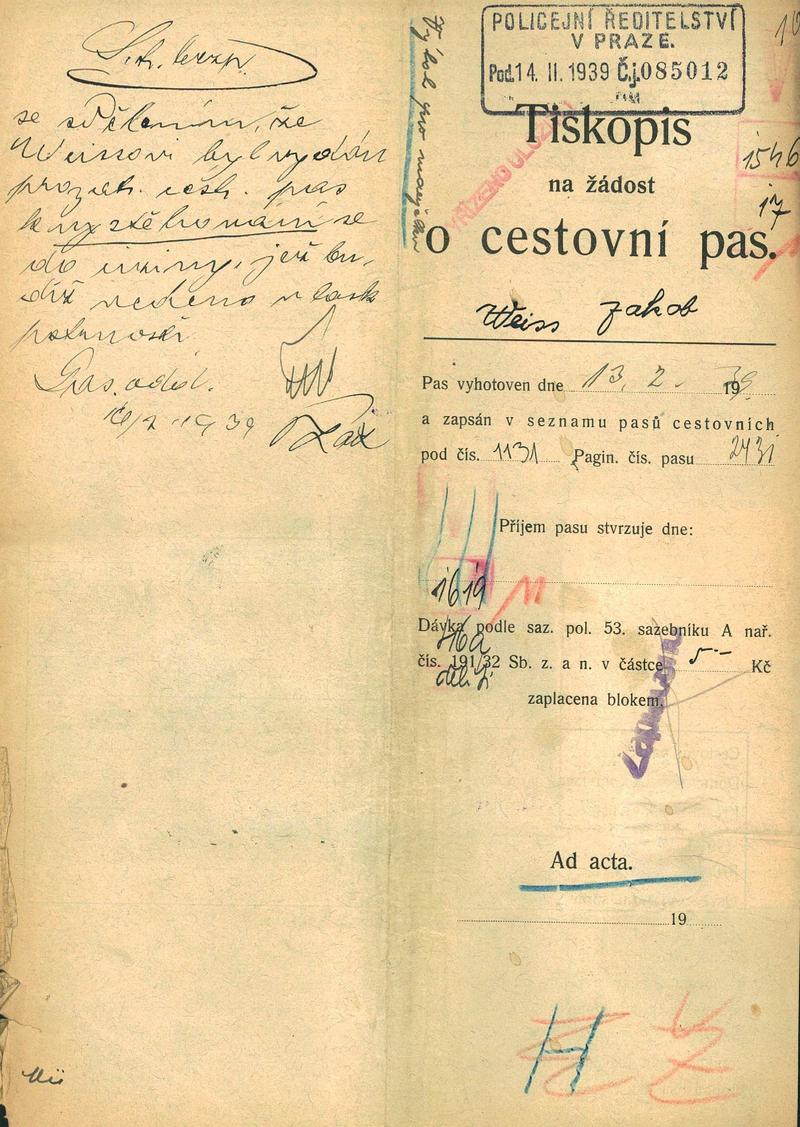 Stát. bezp.
se sdělením, že
Weissovi byl vydán
prozat. cest. pas
k vystěhování se
do ciziny, jež bu-
diž vedeno v lask.
patrnosti.
Pas. odděl.
16/2 1939
POLICEJNÍ ŘEDITELSTVÍ
V PRAZE.
Pod. 14. II. 1939 Č.j. 085012
VYŘÍZENO ULOŽENO
Tiskopis
na žádost
1546
17
o cestovní pas.
Weiss Jakob
Pas vyhotoven dne 13. 2. 1939
a zapsán v seznamu pasů cestovních
pod čís. 1131 Pagin. čís. pasu 2431
Příjem pasu stvrzuje dne:
1619
Dávka podle saz. pol. 53. sazebníku A nař.
čís. 191/32 Sb. z. a n. v částce 5·- Kč
zaplacena blokem.
Zapsáno
Ad acta.
19
H